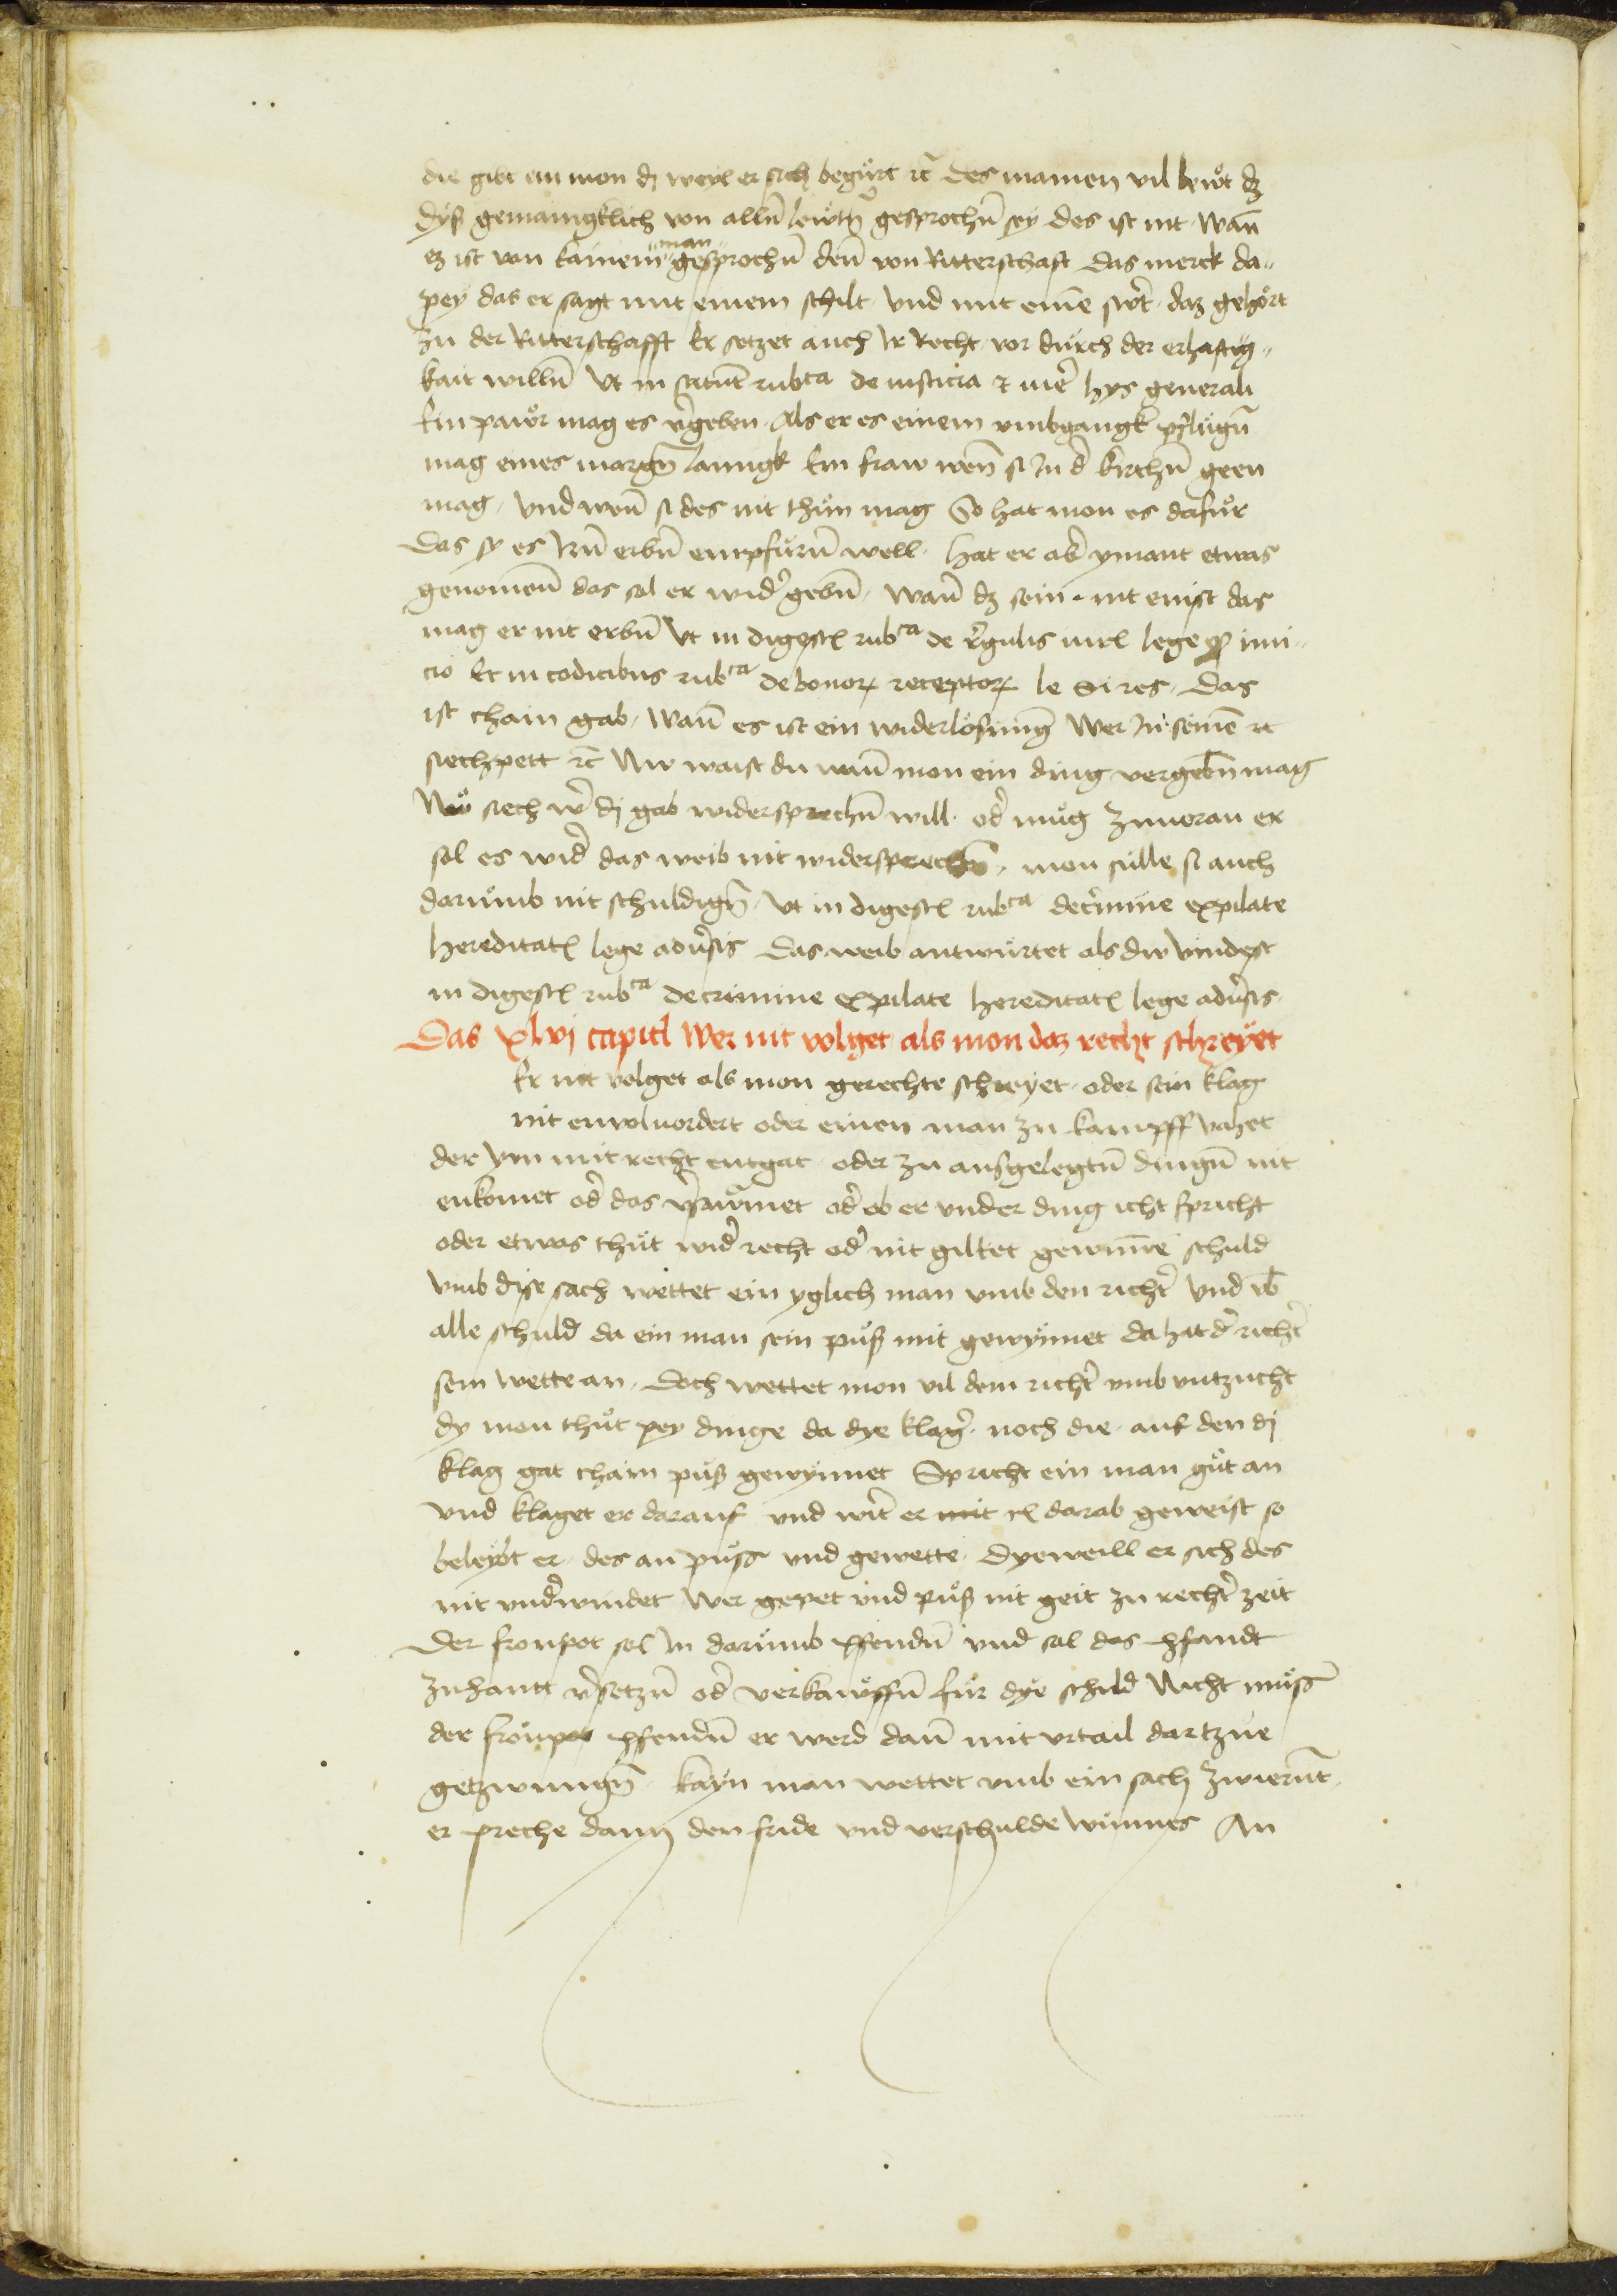 die gibt ein mon dj weyl er sich begürt rc̄ des mainen vil lewt dz
dyß gemainigklich von alln̄ lewtn̄ gesprochn̄ sey des ist nit wan̄
ez ist von kainem man gesprochn̄ den̄ von Ritterschaft das merck da„
pey das er sagt mit einem schilt vnd mit eine̅ swert daz gehört
zu der Ritterschafft Er setzet auch Ir Recht vor durch der erhaftig„
kait willn̄ Vt in statut̅ rubca de iusticia et iure hys generali
Ein pawr mag es vergeben Als er es einem vmbgangk pflugn̄
mag eines morgn̄ lanngk Ein fraw wen̄ si zu der kirchn̄ geen
mag vnd wen̄ si des nit thün mag So hat mon es dafür
das sy es Irn̄ erbn̄ empfürn̄ well hat er aber ymant etwas
genomen̄ das sol er wider gebn̄ wan̄ dz sein nit enist das
mag er nit erbn̄ Vt in digestis rubca de regulis iuris lege
cio Et in codicibus rubca de bonorum receptorum le Si res das
ist chain gab wan̄ es ist ein widerlösung Wer In seine̅ rc
siechpett rc̄ Nw waist du wan̄ mon ein ding vergebn̄ mag
Nw siech wer dj gab widersprechn̄ will oder müg zuuoran er
sol es wider das weib nit widersprechn̄ mon sülle si auch
darumb nit schuldign̄ Vt in digestis rubca de crimine expilate
hereditatis lege aduersis das weib antwürtet als dw vindest
in digestis rubca de crimine expilate hereditatis lege aduersis
Das xlvj capitl Wer nit volget als mon daz recht schreyet
Er nit volget als mon gerechte schreyet oder sein klag
nit enwoluordert oder einen man zu kampff vahet
der ym mit recht entgat oder zu ausgelegtn̄ dingn̄ nit
enkomet oder das versawmet oder ob er vnder ding icht spricht
oder etwas thut wider recht oder nit giltet gewunne̅ schuld
vmb dise sach wettet ein yglich man vmb den richter vnd vb̅
alle schuld da ein man sein puß mit gewynnet da hat der richter
sein wette an doch wettet mon vil dem richter vmb vntzucht
dy mon thut pey dinge da dye klager noch die auf den dj
klag gat chain puß gewynnet Spricht ein man gut an
vnd klaget er darauf vnd wirt er mit darab geweist so
beleybt er des an puss vnd gewette dyeweill er sich des
nit vnderwindet Wer gepet vnd puß nit geit zu rechter zeit
Der fronpot sol In darumb pfendn̄ vnd sal das pfandt
zuhantt versetzn̄ oder verkawffn̄ für dye schuld Nicht muß
der fronpot pfendn̄ er werd dan̄ mit vrtail dartzue
getzwungn̄ kayn man wettet vmb ein sach zwierunt
er preche dann den fride vnd verschulde winnes An